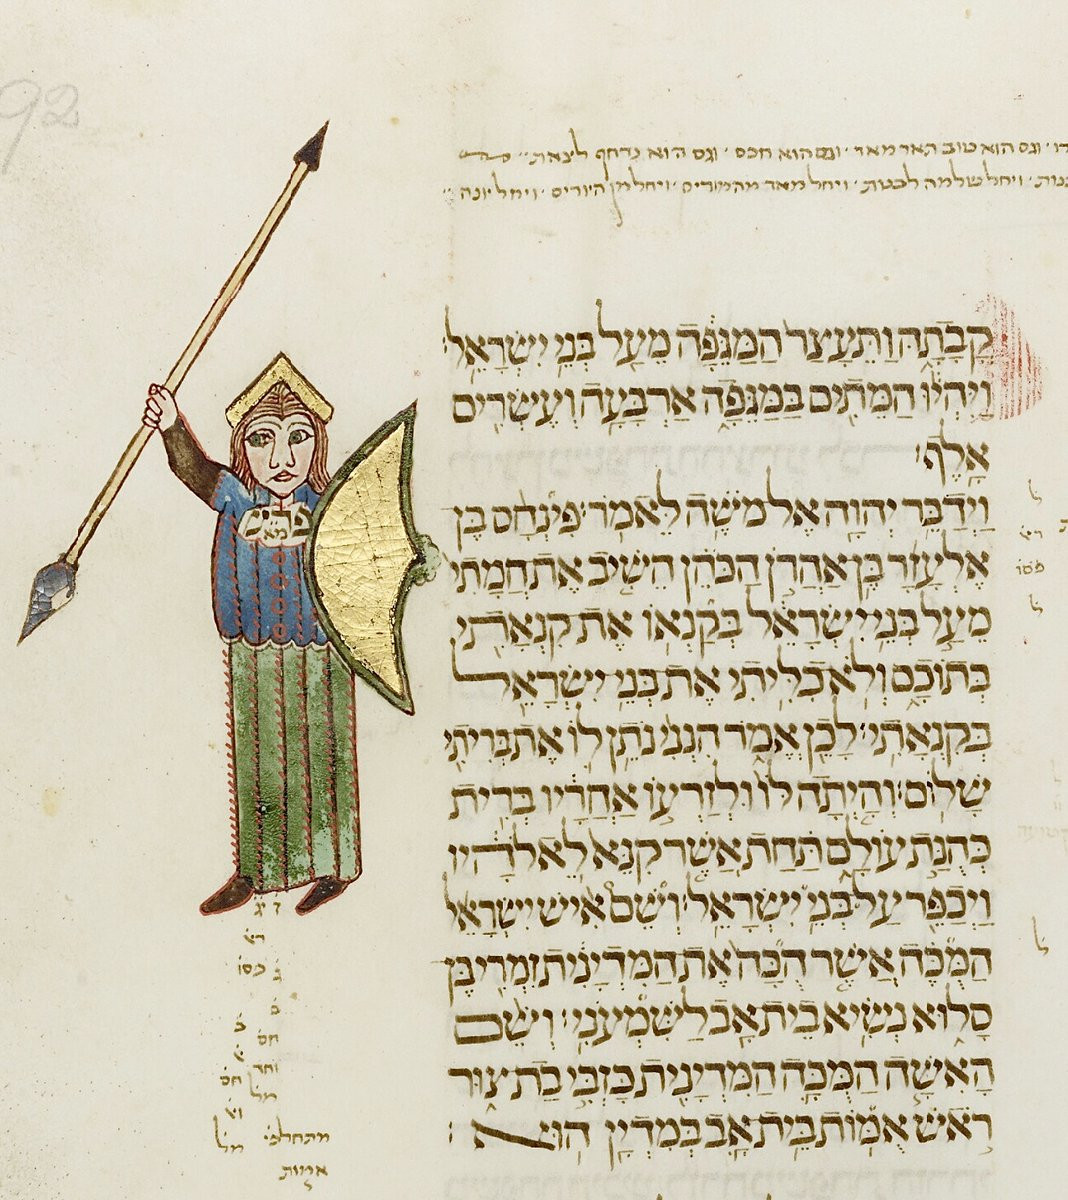 וגם הוא טוב תאר מאד · וגם הוא חכם · וגם הוא נדחף לצאת
ויחל שלמה לבנות · ויחל מאד מהמורים · ויחל מן היורים · ויחל יונה
קֳבָתָהּ וַתֵּעָצַר הַמַּגֵּפָה מֵעַל בְּנֵי יִשְׂרָאֵל׃
וַיִּהְיוּ הַמֵּתִים בַּמַּגֵּפָה אַרְבָּעָה וְעֶשְׂרִים
אָלֶף׃
וַיְדַבֵּר יְהוָה אֶל מֹשֶׁה לֵּאמֹר׃ פִּינְחָס בֶּן
אֶלְעָזָר בֶּן אַהֲרֹן הַכֹּהֵן הֵשִׁיב אֶת חֲמָתִי
מֵעַל בְּנֵי יִשְׂרָאֵל בְּקַנְאוֹ אֶת קִנְאָתִי
בְּתוֹכָם וְלֹא כִלִּיתִי אֶת בְּנֵי יִשְׂרָאֵל
בְּקִנְאָתִי׃ לָכֵן אֱמֹר הִנְנִי נֹתֵן לוֹ אֶת בְּרִיתִי
שָׁלוֹם׃ וְהָיְתָה לּוֹ וּלְזַרְעוֹ אַחֲרָיו בְּרִית
כְּהֻנַּת עוֹלָם תַּחַת אֲשֶׁר קִנֵּא לֵאלֹהָיו
וַיְכַפֵּר עַל בְּנֵי יִשְׂרָאֵל׃ וְשֵׁם אִישׁ יִשְׂרָאֵל
הַמֻּכֶּה אֲשֶׁר הֻכָּה אֶת הַמִּדְיָנִית זִמְרִי בֶּן
סָלוּא נְשִׂיא בֵית אָב לַשִּׁמְעֹנִי׃ וְשֵׁם
הָאִשָּׁה הַמֻּכָּה הַמִּדְיָנִית כָּזְבִּי בַת צוּר
רֹאשׁ אֻמּוֹת בֵּית אָב בְּמִדְיָן הוּא׃
פרש
מא